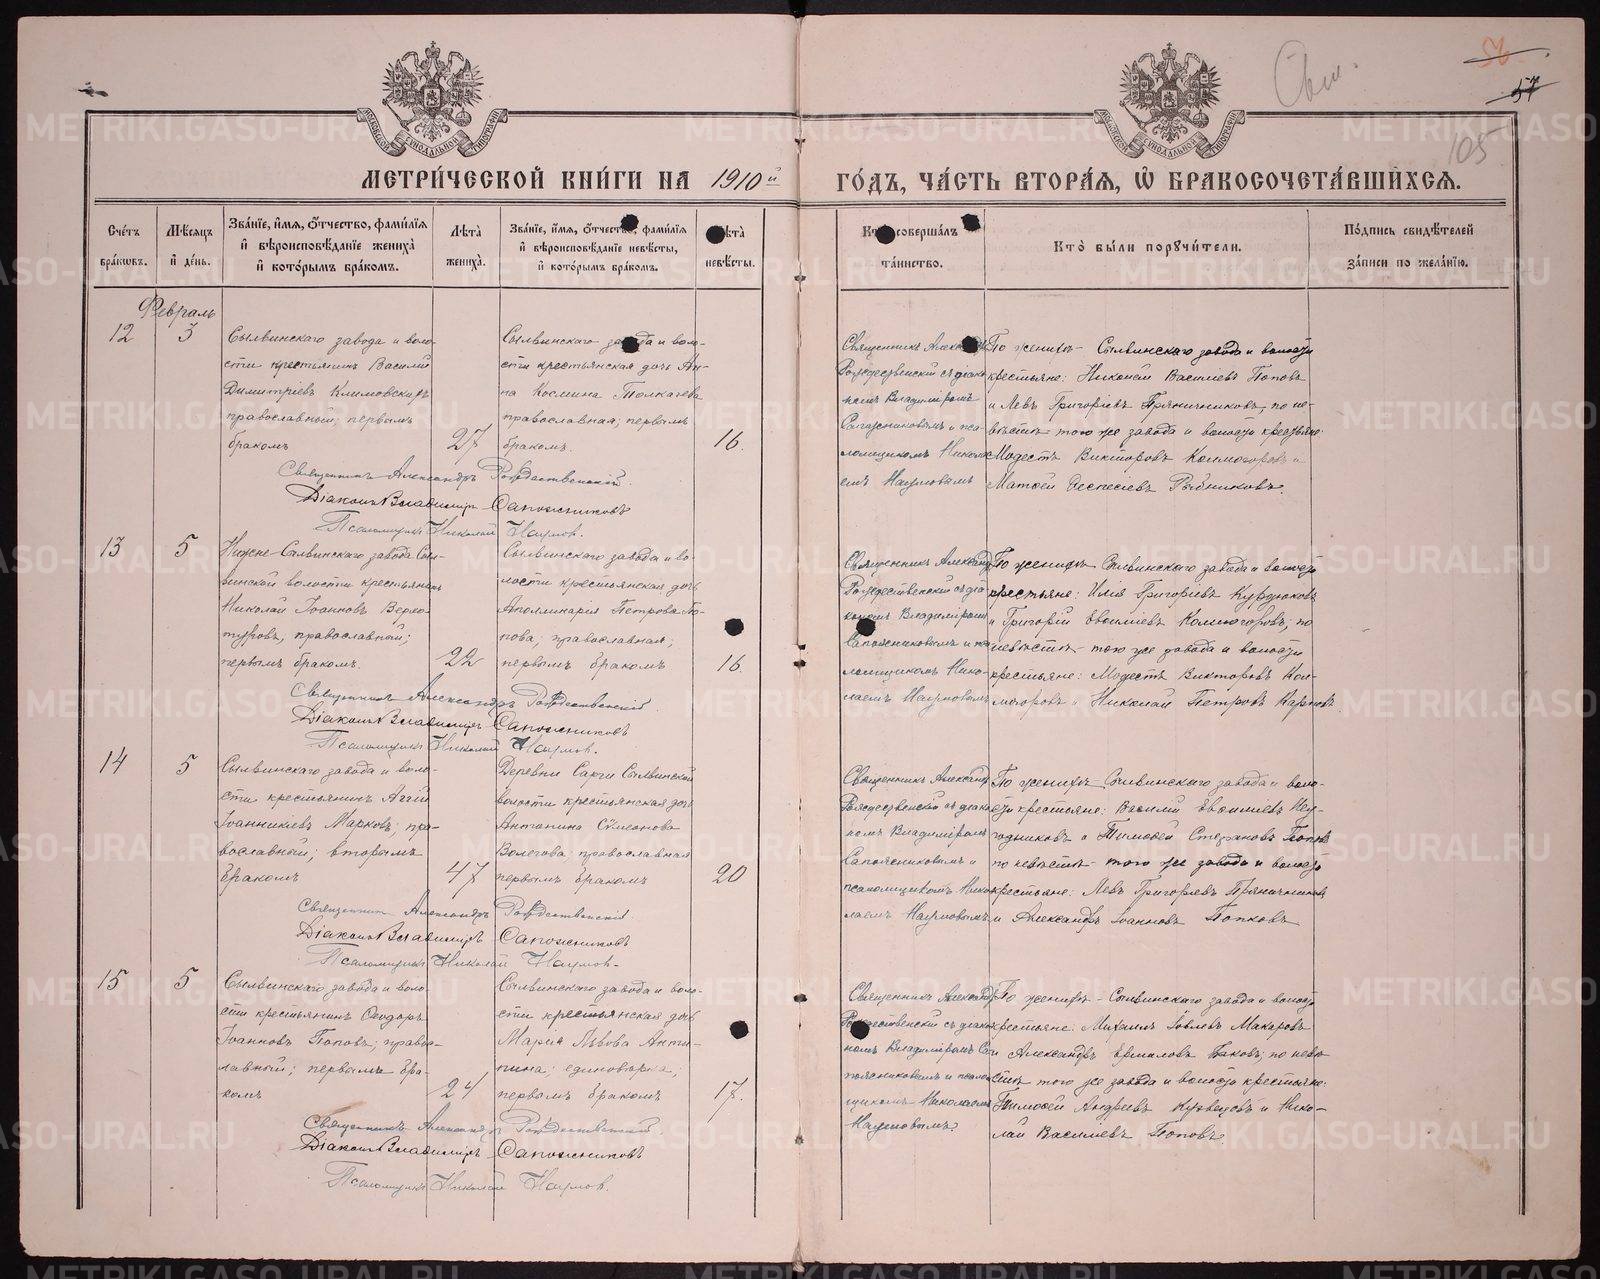 Свт.
57
105
МЕТРИ́ЧЕСКОЙ КНИ́ГИ НА 1910й ГО́ДЪ, ЧА́СТЬ ВТОРА́Я, Ѡ҆ БРАКОСОЧЕТА́ВШИХСЯ.
Сче́тъ бра́кѡвъ.
Мѣ́сяцъ и҆ де́нь.
Зва́нїе, и҆́мя, ѻ҆́тчество, фами́лїя и҆ вѣроисповѣ́данїе жениха̀ и҆ кото́рымъ бра́комъ.
Лѣ́та жениха̀.
Зва́нїе, и҆́мя, ѻ҆́тчество, фами́лїя и҆ вѣроисповѣ́данїе невѣ́сты, и҆ кото́рымъ бра́комъ.
Лѣ́та невѣ́сты.
Кто̀ соверша́лъ та́инство.
Кто̀ бы́ли порꙋчи́тели.
По́дпись свидѣ́телей за́писи по жела́нїю.
Февраль
12
3
Сылвинскаго завода и воло-
сти крестьянинъ Василій
Димитріевъ Климовскихъ
православный; первымъ
бракомъ
27
Сылвинскаго завода и воло-
сти крестьянская дочь Ан-
на Космина Толкачева
православная; первымъ
бракомъ.
16.
Священникъ Александръ
Рождественскій съ діако-
номъ Владиміромъ
Сапожниковымъ и пса-
ломщикомъ Никола-
емъ Наумовымъ
По женихѣ - Сылвинскаго завода и волости
крестьяне: Николай Васильевъ Поповъ
и Левъ Григорьевъ Пряничниковъ, по не-
вѣстѣ - того же завода и волости крестьяне:
Модестъ Викторовъ Колмогоровъ и
Матѳей Рыбниковъ.
Священникъ Александръ Рождественскій.
Діаконъ Владиміръ Сапожниковъ
Псаломщикъ Николай Наумов.
13
5
Нижне-Сылвинскаго завода Сыл-
винской волости крестьянинъ
Николай Іоанновъ Верхо-
туровъ, православный;
первымъ бракомъ.
22
Сылвинскаго завода и во-
лости крестьянская дочь
Аполлинарія Петрова По-
пова; православная;
первымъ бракомъ
16
Священникъ Александръ
Рождественскій съ діа-
кономъ Владиміромъ
Сапожниковымъ и пса-
ломщикомъ Нико-
лаемъ Наумовымъ
По женихѣ Сылвинскаго завода и волости
крестьяне: Илія Григорьевъ Курдюковъ
и Григорій Колмогоровъ, по
невѣстѣ - того же завода и волости
крестьяне: Модестъ Викторовъ Кол-
могоровъ и Николай Петровъ Карповъ.
Священникъ Александръ Рождественскій.
Діаконъ Владиміръ Сапожниковъ
Псаломщикъ Николай Наумов.
14
5
Сылвинскаго завода и воло-
сти крестьянинъ Аггій
Іоанникіевъ Марковъ; пра-
вославный; вторымъ
бракомъ
47
Деревни Сарги Сылвинской
волости крестьянская дочь
Антонина Сѵмеонова
Волегова; православная
первымъ бракомъ
20
Священникъ Александръ
Рождественскій съ діако-
номъ Владиміромъ
Сапожниковымъ и
псаломщикомъ Нико-
лаемъ Наумовымъ
По женихѣ - Сылвинскаго завода и воло-
сти крестьяне: Василій
и Тимоѳей Степановъ Поповъ
по невѣстѣ - того же завода и волости
крестьяне: Левъ Григорьевъ Пряничниковъ
и Александръ Іоанновъ Попковъ
Священникъ Александръ Рождественскій.
Діаконъ Владиміръ Сапожниковъ
Псаломщикъ Николай Наумов.
15
5
Сылвинскаго завода и воло-
сти крестьянинъ Ѳеодоръ
Іоанновъ Поповъ; правос-
лавный; первымъ бра-
комъ
24
Сылвинскаго завода и воло-
сти крестьянская дочь
Марія Львова Анти-
пина; единовѣрка;
первымъ бракомъ
17.
Священникъ Александръ
Рождественскій съ діако-
номъ Владиміромъ Са-
пожниковымъ и псалом-
щикомъ Николаемъ
Наумовымъ.
По женихѣ - Сылвинскаго завода и волости
крестьяне: Михаилъ Іовлевъ Макаровъ
и Александръ Ермиловъ по невѣ-
стѣ того же завода и волости крестьяне:
Тимоѳей Андреевъ Кузнецовъ и Нико-
лай Василіевъ Поповъ.
Священникъ Александръ Рождественскій.
Діаконъ Владиміръ Сапожниковъ
Псаломщикъ Николай Наумов.
METRIKI.GASO-URAL.RU